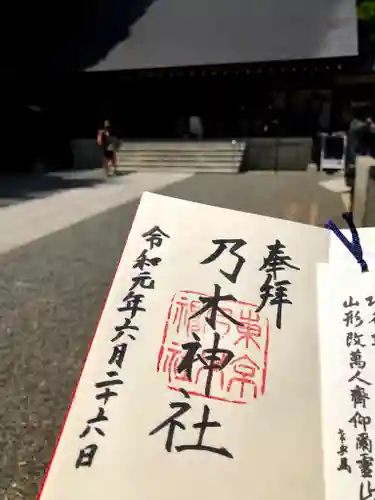 山形改萬人齊仰爾靈山
奉拝
乃木神社
東京乃木神社
令和元年六月二十六日